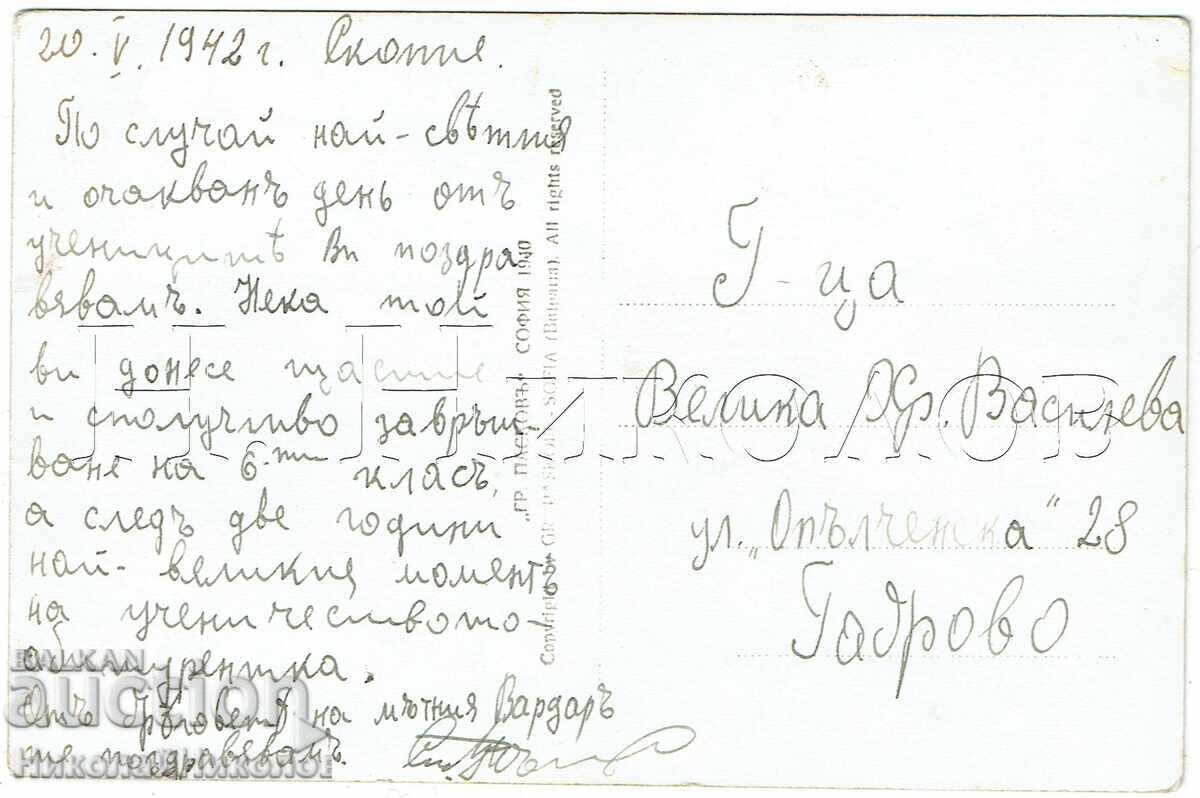 20. V. 1942 г. Скопие.
По случай най-свѣтлия
и очакванъ день отъ
ученицитѣ Ви поздра
вявамъ. Нека той
ви донесе щастие
и сполучливо завръш-
ване на 6-ти класъ,
а следъ две години
най-великия моментъ
на ученичеството-
абитурентка.
Отъ брѣговетѣ на мътния Вардаръ
поздравевамъ.
Г-ца
Велика Хр. Василева
ул. „Опълченска“ 28
Габрово
„ГР. ПАСКОВЪ“ СОФИЯ 1940
Copyright by GR. PASKOV - SOFIA (Bulgaria). All rights reserved
Н. НИКОЛОВ
BALKAN
auction
НИКОЛАЙ НИКОЛОВ